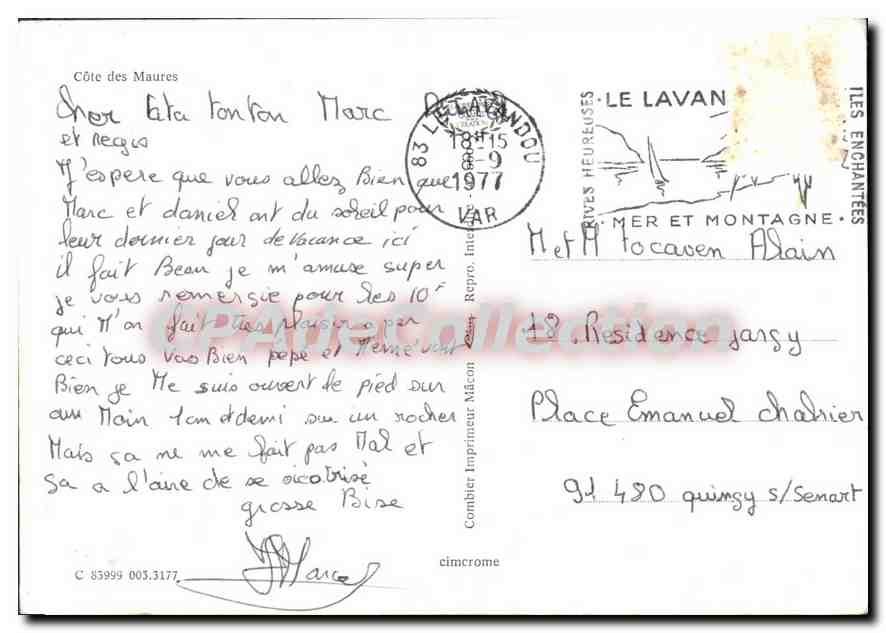 Côte des Maures
Cher tata tonton Marc
et regis
J'espere que vous allez Bien que
Marc et daniel ont du soleil pour
leur dernier jour de vacance ici
il fait Beau je m'amuse super
je vous remersie pour les 10F
qui M'on fait tres plaisir a per
ceci tous vas Bien pepe et Memé vont
Bien je Me suis ouvert le pied sur
au Moin 1cm et demi sur un rocher
Mais sa ne me fait pas Mal et
sa a l'aire de se sicatrisé
grosse Bise
Marc
C 83999 003.3177
cimcrome
Combier Imprimeur Mâcon
Repro.
83 LE LAVANDOU
18H15
8-9
1977
VAR
RIVES HEUREUSES
LE LAVAN
ILES ENCHANTÉES
MER ET MONTAGNE
M et M tocaven Alain
18. Residence jarsy
Place Emanuel chabrier
91 480 quinsy s/Senart
CPAdeCollection